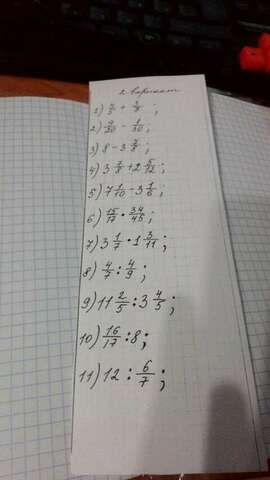 2 вариант
1) 2/5 + 2/7 ;
2) 9/20 - 1/30 ;
3) 8 - 3 3/8 ;
4) 3 3/8 + 2 5/12 ;
5) 7 1/10 - 3 1/6 ;
6) 15/17 • 34/45 ;
7) 3 1/7 • 1 3/11 ;
8) 4/7 : 4/9 ;
9) 11 2/5 : 3 4/5 ;
10) 16/17 : 8 ;
11) 12 : 6/7 ;